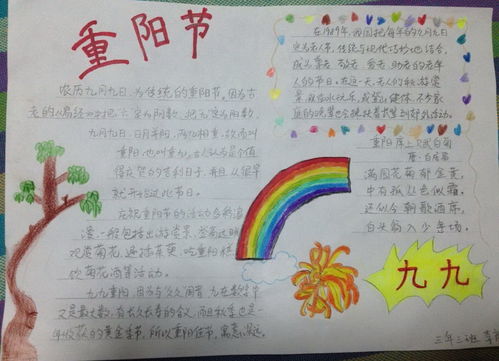 重阳节
农历九月九日,为传统的重阳节。因为古
老的《易经》中把六定为阴数,把九定为阳数,
九月九日,日月并阳,两九相重,故而叫
重阳,也叫重九。古人认为是个值
得庆贺的吉利日子,并且从很早
就开始过此节日。
庆祝重阳节的活动多彩浪
漫,一般包括出游赏景、登高远眺、
观赏菊花、遍插茱萸、吃重阳糕、
饮菊花酒等活动。
九九重阳,因为与久久同音,九在数字中
又是最大数,有长久长寿的含义,而且秋季也是一
年收获的黄金季节,所以重阳佳节,寓意深远。
在1989年,我国把每年的九月九日
定为老人节,传统与现代巧妙地结合,
成为尊老 敬老 爱老 助老的老年
人的节日。
重阳席上赋白菊
唐·白居易
满园花菊郁金黄,
中有孤丛色似霜。
还似今朝歌酒席,
白头翁入少年场。
九九
三年三班